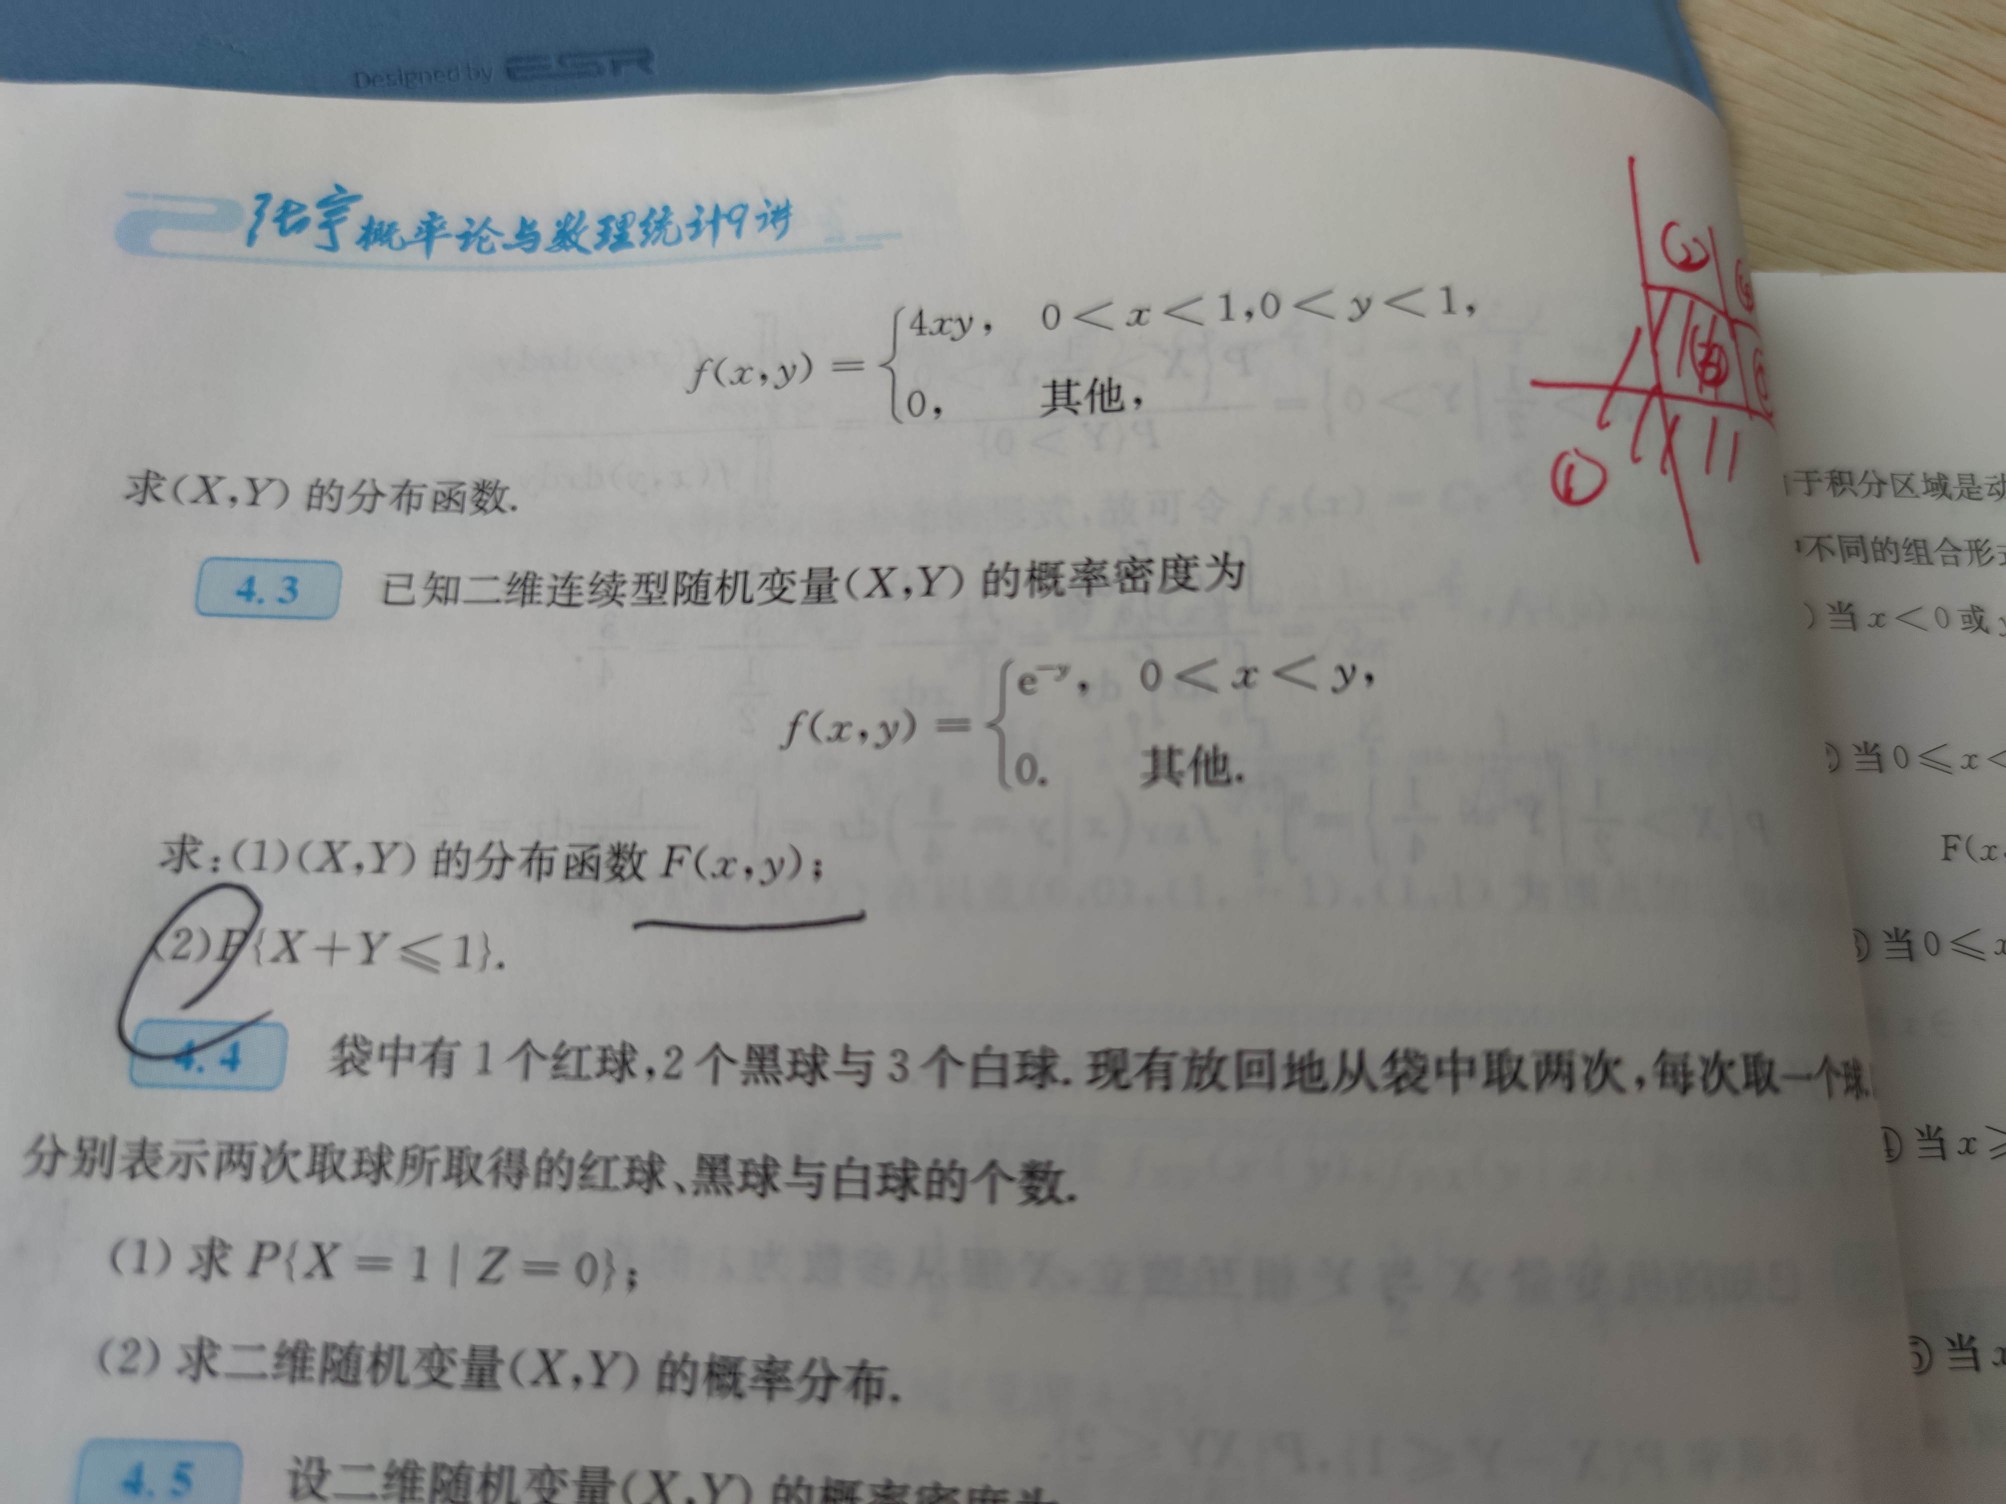 Designed by ESR
张宇概率论与数理统计9讲
f(x,y) = { 4xy, 0<x<1,0<y<1,
0, 其他,
求(X,Y)的分布函数.
4.3 已知二维连续型随机变量(X,Y)的概率密度为
f(x,y) = { e⁻ʸ, 0<x<y,
0. 其他.
求:(1)(X,Y)的分布函数F(x,y);
(2)P{X+Y≤1}.
4.4 袋中有1个红球,2个黑球与3个白球.现有放回地从袋中取两次,每次取一个球
分别表示两次取球所取得的红球、黑球与白球的个数.
(1)求P{X=1|Z=0};
(2)求二维随机变量(X,Y)的概率分布.
4.5 设二维随机变量(X,Y)的概率密度为
②
①
于积分区域是动
不同的组合形
)当x<0或y
②当0≤x<
F(x,
③当0≤x
④当x≥
⑤当x